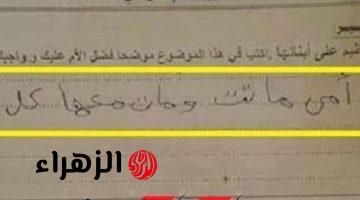 على أبنائها . اكتب في هذا الموضوع موضحا فضل الأم عليك وواجبك
أمى ماتت ومات معها كل
الزهراء